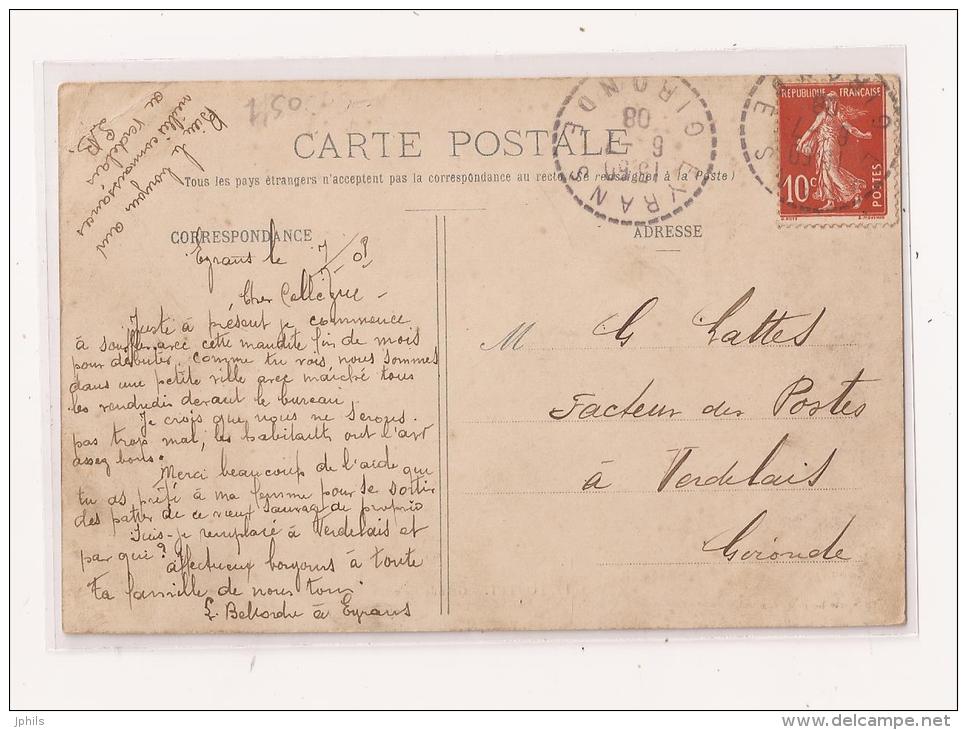 CARTE POSTALE
Tous les pays étrangers n'acceptent pas la correspondance au recto (Se renseigner à la Poste)
CORRESPONDANCE
ADRESSE
RÉPUBLIQUE FRANÇAISE
10 c
POSTES
EYRANS
GIRONDE
08
Bien le
aux
meilles connaissances
de Verdelais
Eyrans le 7
Cher Collègue -
Juste à présent je commence
à souffler avec cette maudite fin de mois
pour débuter, comme tu vois nous sommes
dans une petite ville avec marché tous
les vendredis devant le bureau.
Je crois que nous ne serons
pas trop mal, les habitants ont l'air
assez bons.
Merci beaucoup de l'aide que
tu as prêté à ma femme pour se sortir
des pattes de ce vieux sauvage de proprio
Suis-je remplacé à Verdelais et
par qui?
affectueux à toute
ta famille de nous tous.
à Eyrans
M G Lattes
Facteur des Postes
à Verdelais
Gironde
jphils
www.delcampe.net